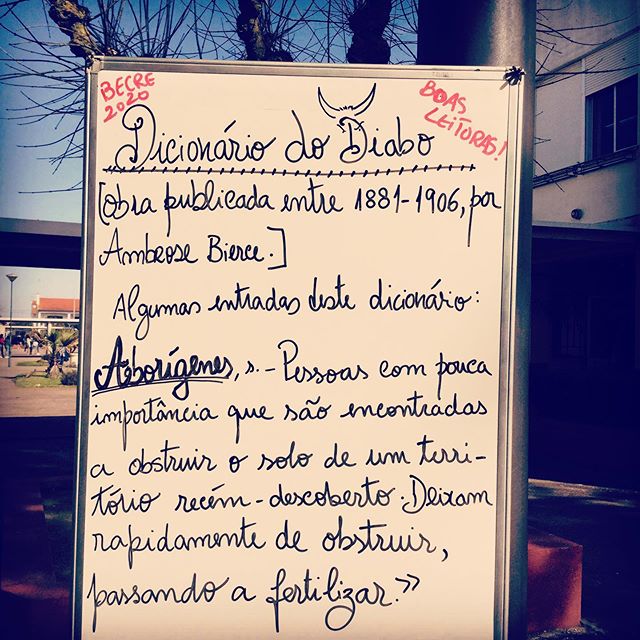 BECRE
2020
BOAS
LEITURAS!
Dicionário do Diabo
[obra publicada entre 1881-1906, por
Ambrose Bierce.]
Algumas entradas deste dicionário:
Aborígenes, s. - Pessoas com pouca
importância que são encontradas
a obstruir o solo de um terri-
tório recém-descoberto. Deixam
rapidamente de obstruir,
passando a fertilizar.»